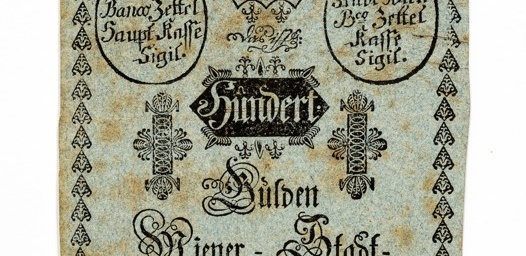 Banco Zettel
Haupt Kasse
Sigil.
Bco Zettel
Kasse
Sigil.
Hundert
Gulden
Wiener - Stadt-